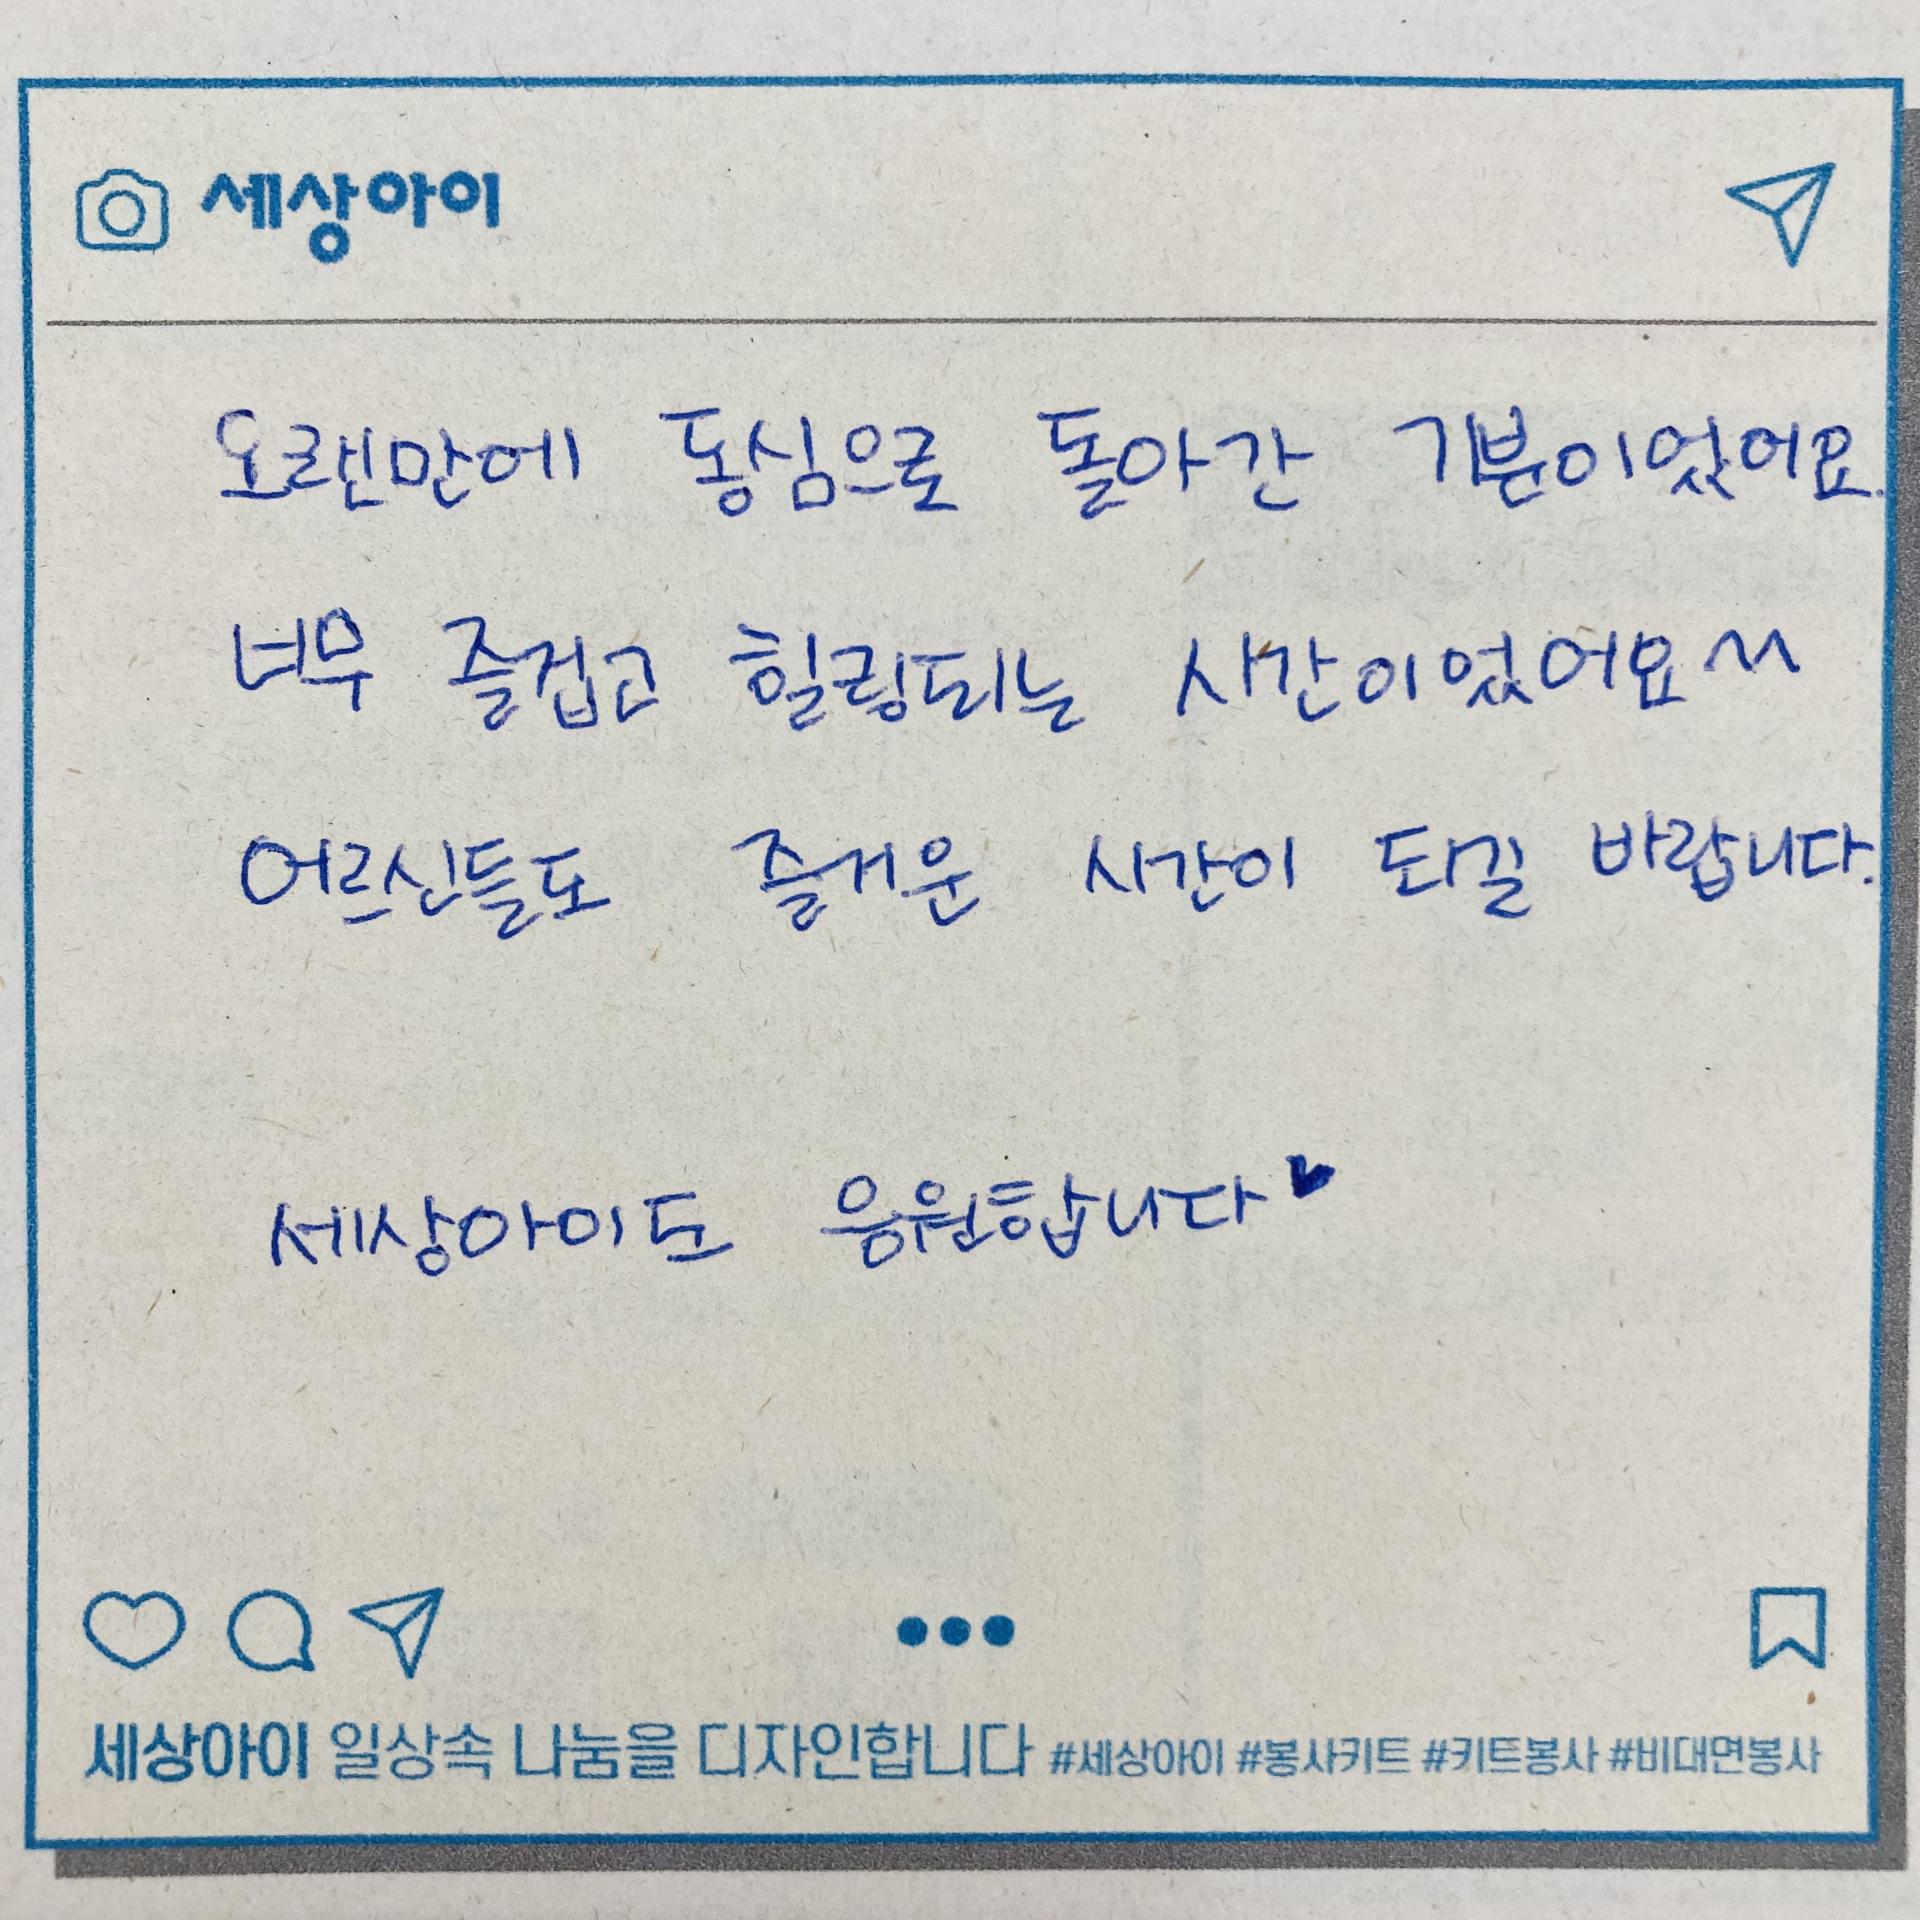 세상아이
오랜만에 동심으로 돌아간 기분이었어요.
너무 즐겁고 힐링되는 시간이었어요^^
어르신들도 즐거운 시간이 되길 바랍니다.
세상아이도 응원합니다♥
세상아이 일상속 나눔을 디자인합니다 #세상아이 #봉사키트 #키트봉사 #비대면봉사